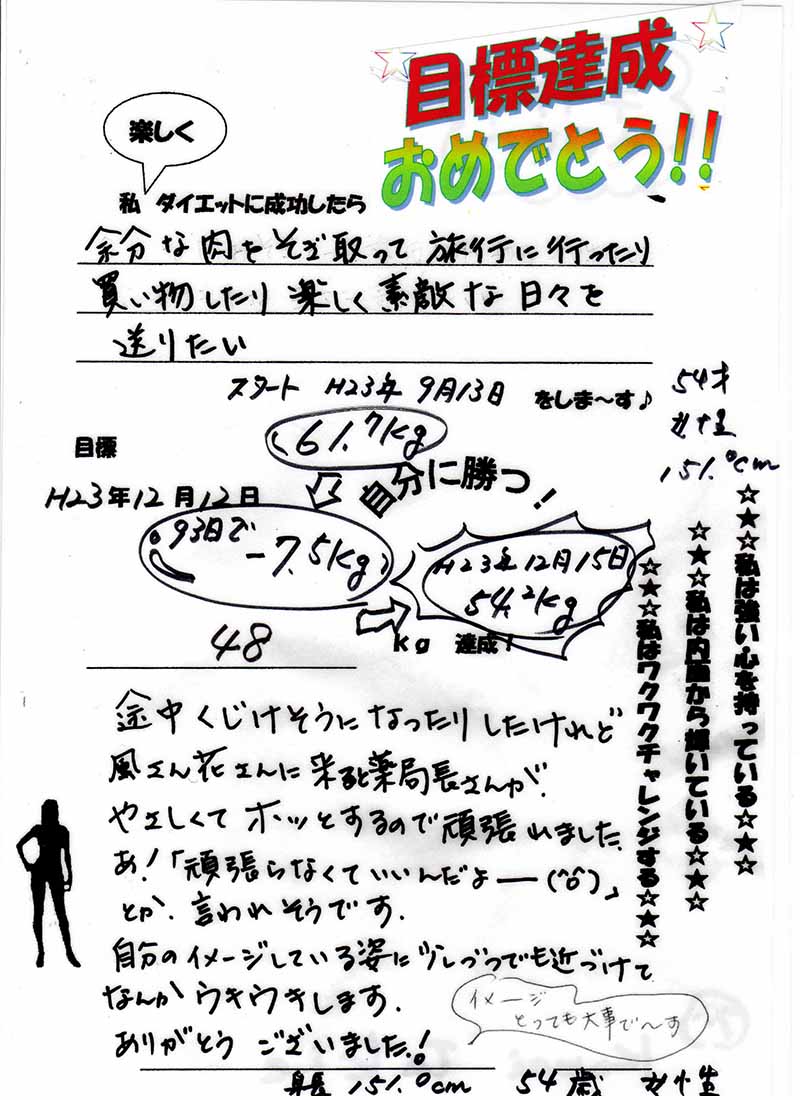 目標達成
おめでとう!!
楽しく
私 ダイエットに成功したら
余分な肉をそぎ取って 旅行に行ったり
買い物したり 楽しく素敵な日々を
送りたい
スタート H23年 9月13日
をしま〜す♪
54才
女性
151.0cm
61.7kg
目標
自分に勝つ!
H23年12月12日
93日で
-7.5kg
H23年12月15日
54.2kg
48
kg 達成!
☆★☆私は強い心を持っている☆★☆
☆★☆私は内面から輝いている☆★☆
☆★☆私はワクワクチャレンジする☆★☆
途中くじけそうになったりしたけれど
風さん花さんに来ると薬局長さんが、
やさしくてホッとするので頑張れました。
あ!「頑張らなくていいんだよー(^o^)」
とか、言われそうです.
自分のイメージしている姿に少しづつでも近づけて
なんかウキウキします.
ありがとう ございました!
イメージ
とっても大事で〜す
身長 151.0cm 54歳 女性